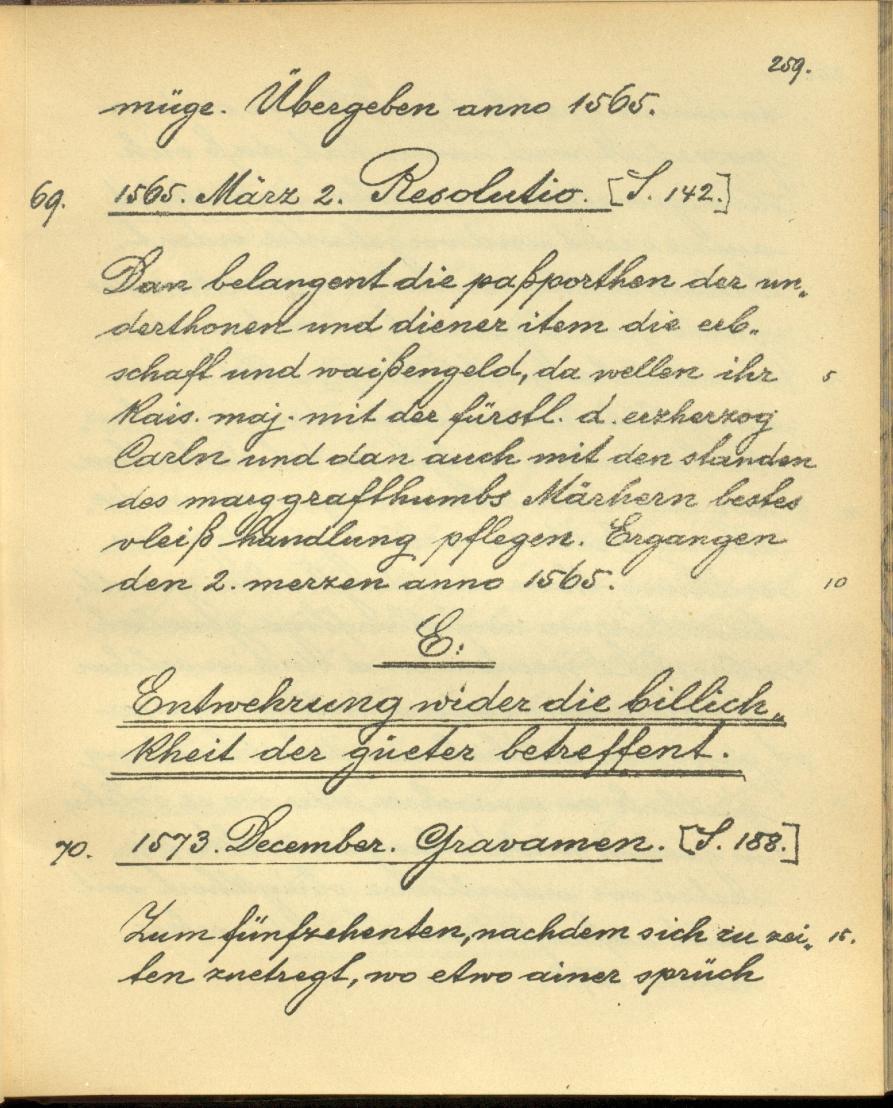 259.
müge. Übergeben anno 1565.
69. 1565. März 2. Resolutio. [S. 142.]
Dan belangent die paßporthen der un„
derthonen und diener item die erb„
schaft und waißengeld, da wellen ihr 5
kais. maj. mit der fürstl. d. erzherzog
Carln und dan auch mit den standen
des marggrafthumbs Märhern bestes
vleiß handlung pflegen. Ergangen
den 2. merzen anno 1565. 10
E.
Entwehrung wider die billich„
kheit der güeter betreffent.
70. 1573. December. Gravamen. [S. 188.]
Zum fünfzehenten, nachdem sich zu zei„ 15.
ten zuetregt, wo etwo ainer sprüch